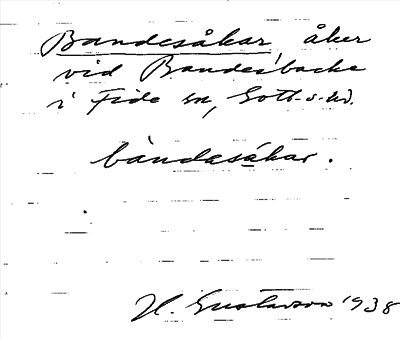 Bandesåkar, åker
vid Bandesbacke
i Fide sn, Gotl. s. hd.
bàndesákar.
H. Gustavson 1938